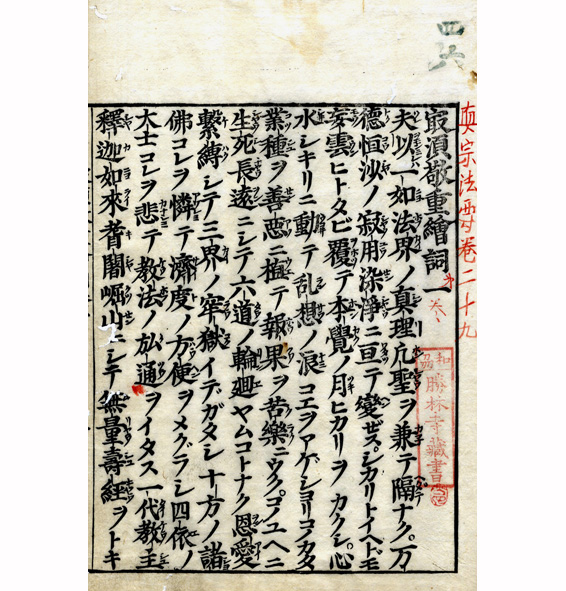 真宗法要卷二十九
最須敬重繪詞一
夫以一如法界ノ真理凢聖ヲ兼テ隔ナク万
徳恒沙ノ寂用染淨ニ亘テ變ゼズシカリトイヘドモ
妄雲ヒトタビ覆テ本覺ノ月ヒカリヲカクシ心
水シキリニ動テ乱想ノ浪コエヲアゲショリコノカタ
業種ヲ善惡ニ植テ報果ヲ苦樂ニウクコノユヘニ
生死長遠ニシテ六道ノ輪廻ヤムコトナク恩愛
繫縛シテ三界ノ牢獄イデガタシ十方ノ諸
佛コレヲ憐テ濟度ノ方便ヲメグラシ四依ノ
大士コレヲ悲テ教法ノ弘通ヲイタス一代教主
釋迦如來耆闍崛山ニシテ無量壽經ヲトキ
勝林寺藏書